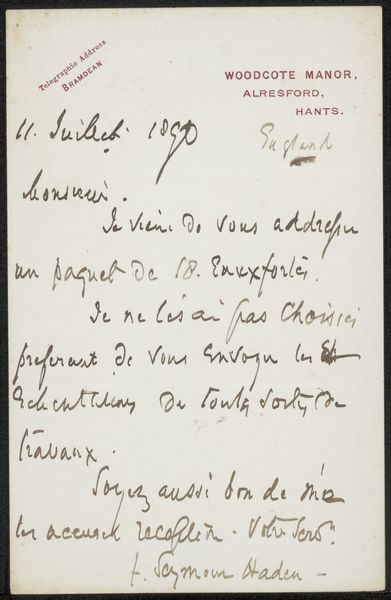 Telegraphic Address
BRAMDEAN
WOODCOTE MANOR,
ALRESFORD,
HANTS.
11. Juillet. 1890
England
Monsieur.
Je viens de vous addresser
un paquet de 18. Eauxfortes.
Je ne les ai pas Choisies
preferant de vous Envoyer les
Echantillons de toutes sortes de
travaux.
Soyez aussi bon de m'en
accuser reception - Votre Servr.
f. Seymour Haden -